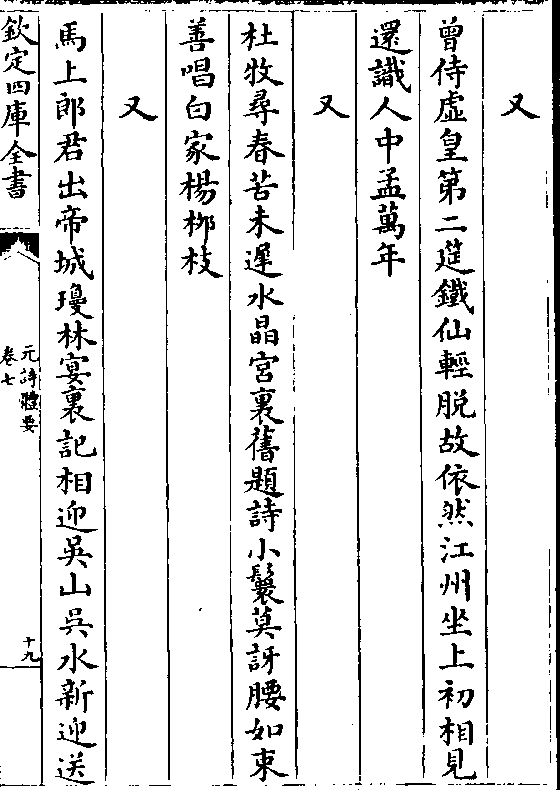 又
曾侍虚皇第二筵鐵仙輕脱故依然江州坐上初相見
還識人中孟萬年
又
杜牧尋春苦未遲水晶宫裏舊題詩小鬟莫訝腰如束
善唱白家楊栁枝
又
馬上郎君出帝城瓊林宴裏記相迎吳山吳水新迎送
欽定四庫全書
元詩體要
卷七
十九